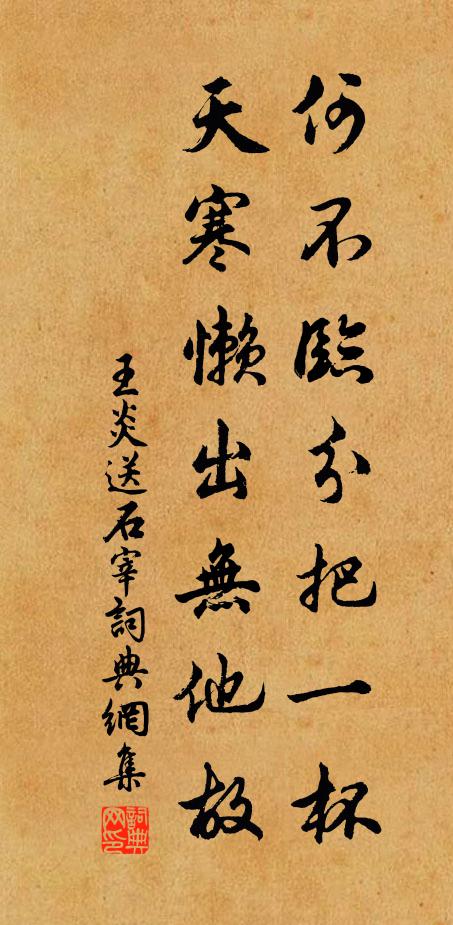 何不臨分把一杯
天寒懶出無他故
王炎送石宰詞典網集
詞典
网印